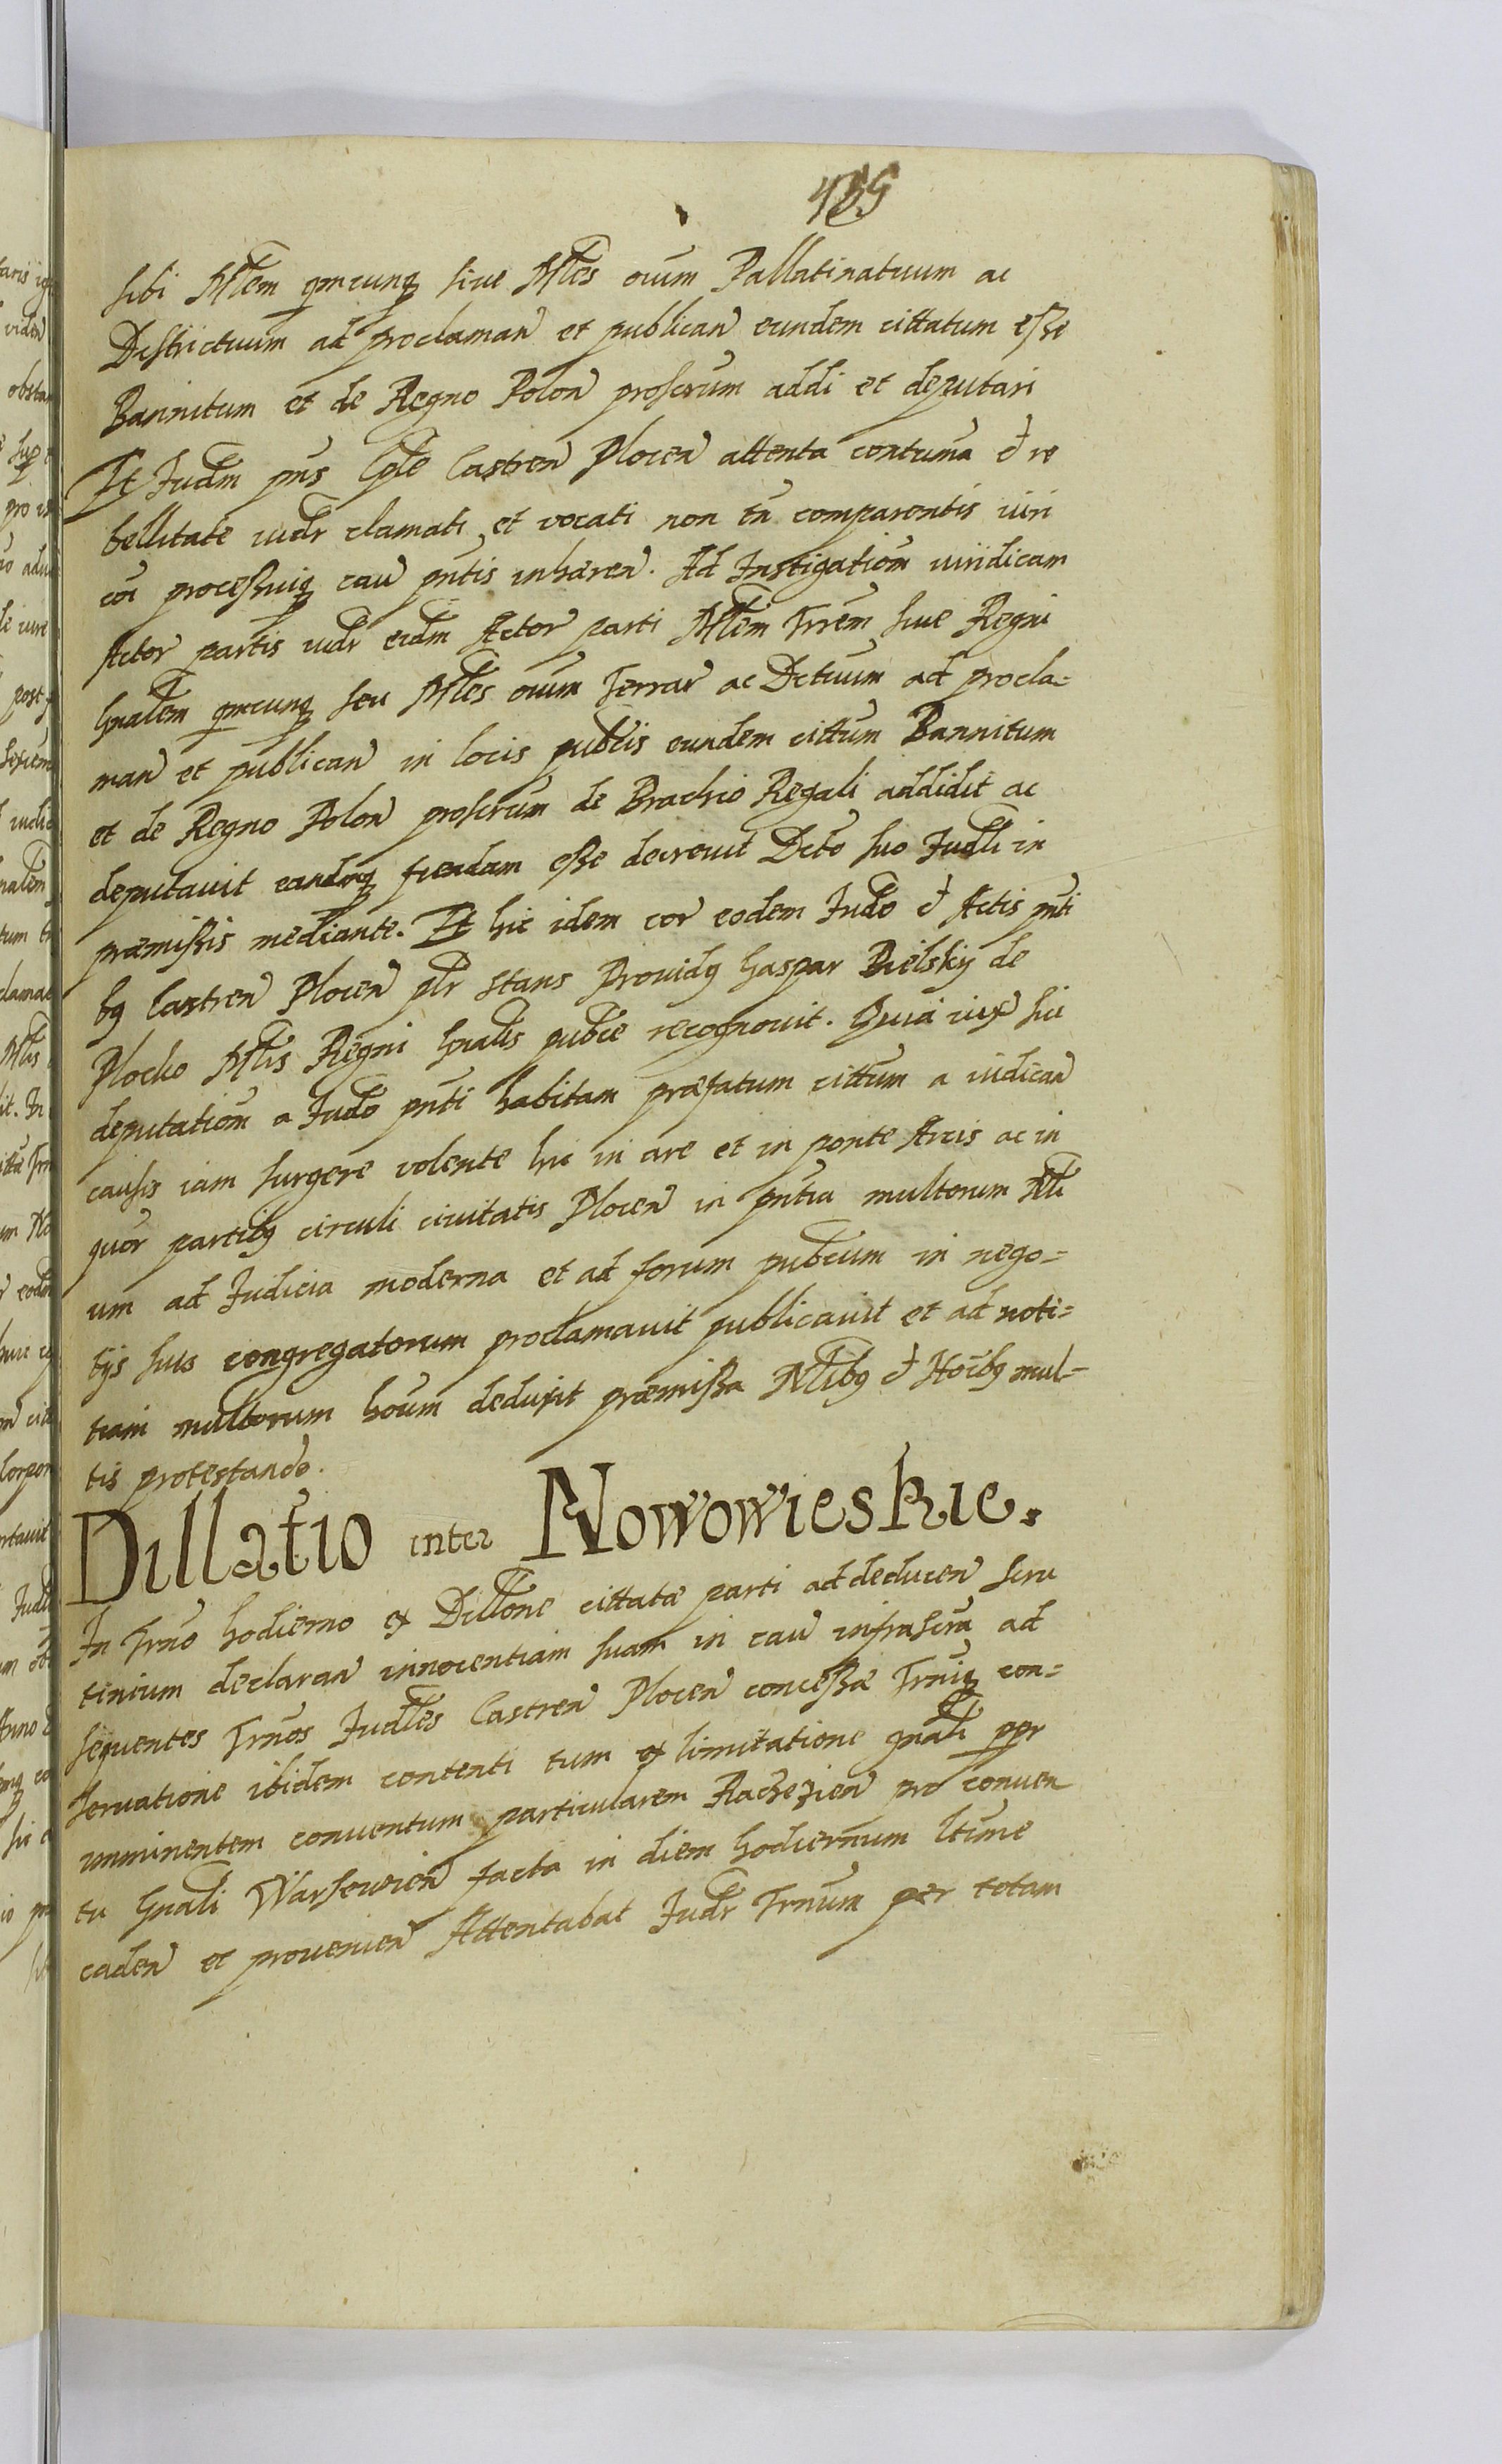 sibi Mlem qmcunq siue Mles oium Pallatinatuum ac
Districtuum ad proclaman et publican eundem cittatum esse
Bannitum et de Regno Polon proscrum addi et deputari
Et Judm pns Cple Castren Plocen attenta contuma et re
bellitate iudr clamati et vocati non tn comparentis iuri
coi processuiq cau pntis inhaeren. Ad Instigationm iuridicam
Actor partis iudr eidm Actor parti Mlem Trrem siue Regni
Gnalem qmcunq seu Mles oium Terrar ac Dctuum ad procla=
man et publican in locis publcis eundem cittum Bannitum
et de Regno Polon proscrum de Brachio Regali addidit ac
deputauit eandmq fiendam esse decreuit Dcto suo Judli in
praemissis mediante. Et hic idem cor eodem Judo et Actis pnti
bq Castren Plocen plr stans Prouidq Gaspar Bielsky de
Plocko Mlis Regni Gnalis publce recognouit. Quia iux sui
deputationm a Judo pnti habitam praefatum cittum a iudican
causis iam surgere volente hic in arce et in ponte Arcis ac in
quor partibq circuli ciuitatis Plocen in pntia multorum Nli
um ad Judicia moderna et ad forum publcum in nego=
tijs suis congregatorum proclamauit publicauit et ad noti=
tiam multorum hoium deduxit praemissa Nlibq et Hoibq mul=
tis protestando.
Dillatio inter Nowowieskie.
In Trno hodierno ex Dillone cittatae parti ad deducen scru
tinium declaran innocentiam suam in cau infrascra ad
sequentes Trnos Judles Castren Plocen concessae Trniq con=
seruatione ibidem contenti tum ex limitatione gnali ppr
imminentem conuentum particularem Raczezien pro conuen
tu Gnali Warschouien facta in diem hodiernum ltime
caden et prouenien Attentabat Judr Trnum per totam